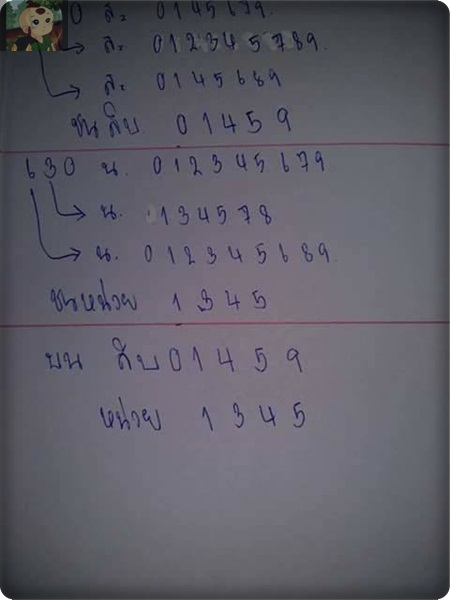 0 ส. 0145679.
ส. 012345789.
ส. 0145689
ชน สิบ 01459
630 น. 012345679
น. 134578
น. 012345689.
ชนหน่วย 1345
บน สิบ 01459
หน่วย 1345